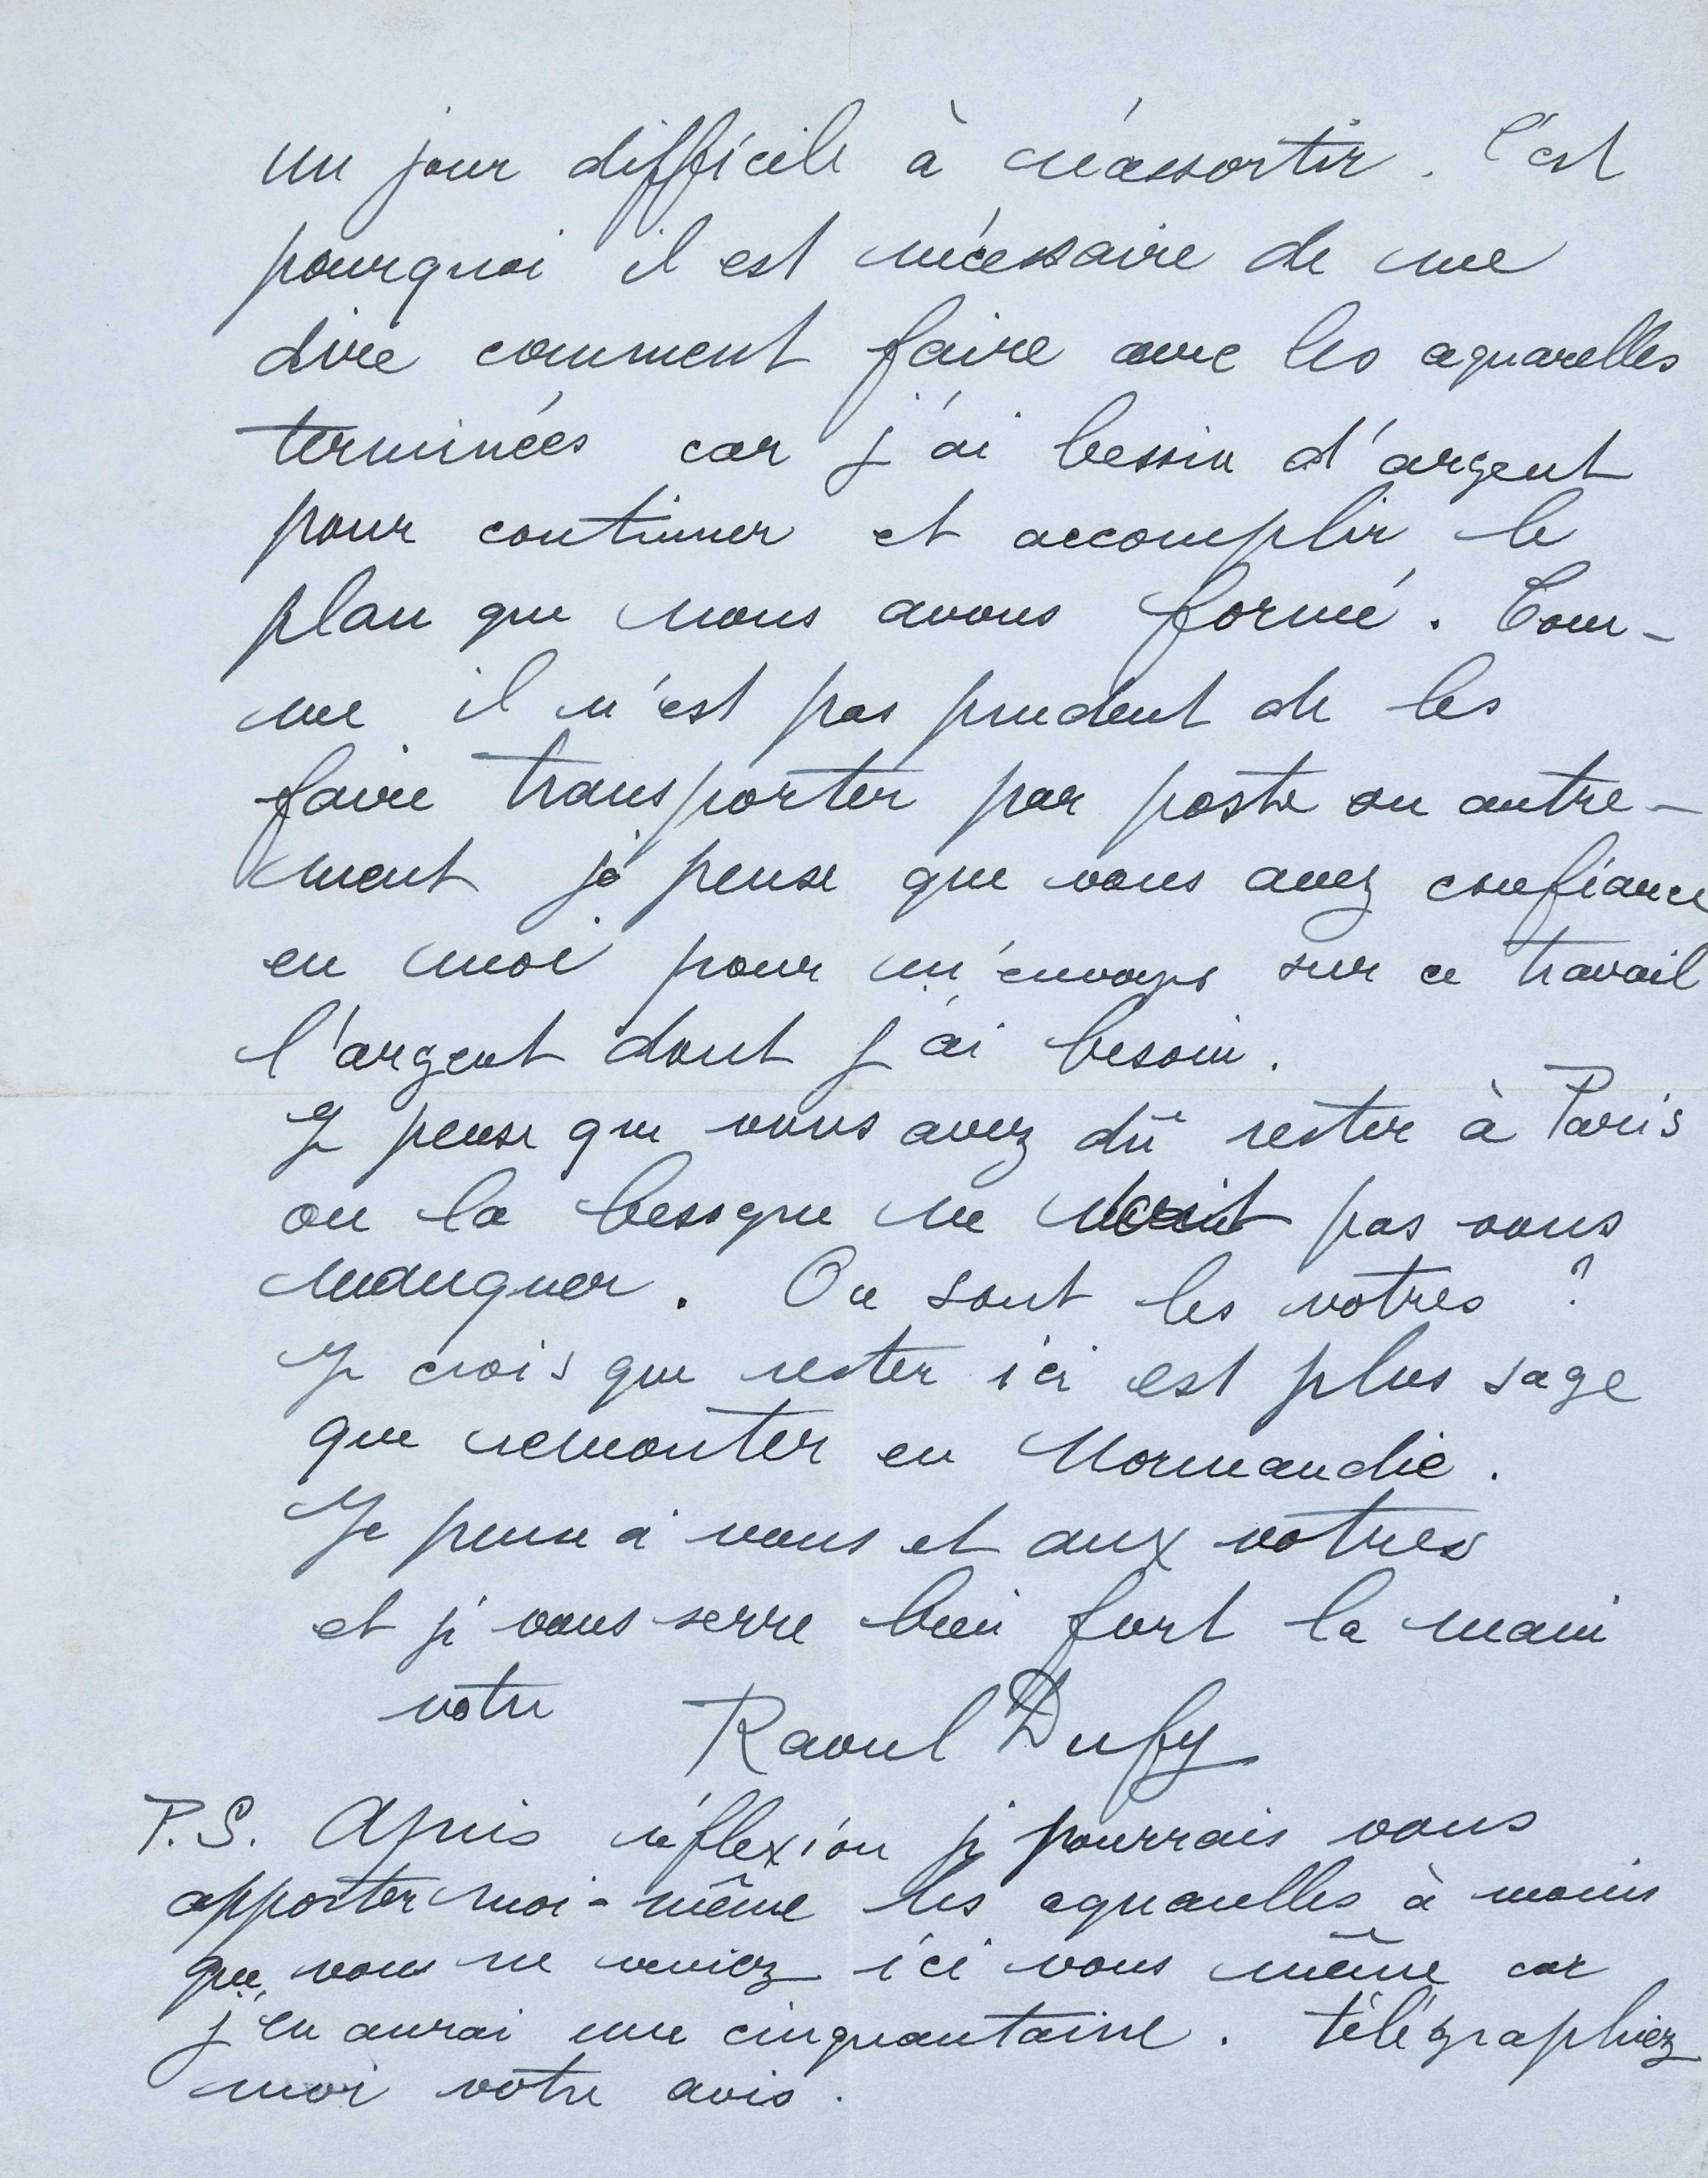 un jour difficile à réassortir. C'est
pourquoi il est nécessaire de me
dire comment faire avec les aquarelles
terminées car j'ai besoin d'argent
pour continuer et accomplir le
plan que nous avons formé. Com-
me il n'est pas prudent de les
faire transporter par poste ou autre-
ment je pense que vous avez confiance
en moi pour m'envoyer sur ce travail
l'argent dont j'ai besoin.
Je pense que vous avez dû rester à Paris
ou la besogne ne doit pas vous
manquer. Ou sont les votres ?
Je crois que rester ici est plus sage
que remonter en Normandie.
Je pense à vous et aux votres
et je vous serre bien fort la main
votre Raoul Dufy
P.S. Après réflexion je pourrais vous
apporter moi-même les aquarelles à moins
que vous ne veniez ici vous même car
j'en aurai une cinquantaine. télégraphiez
moi votre avis.